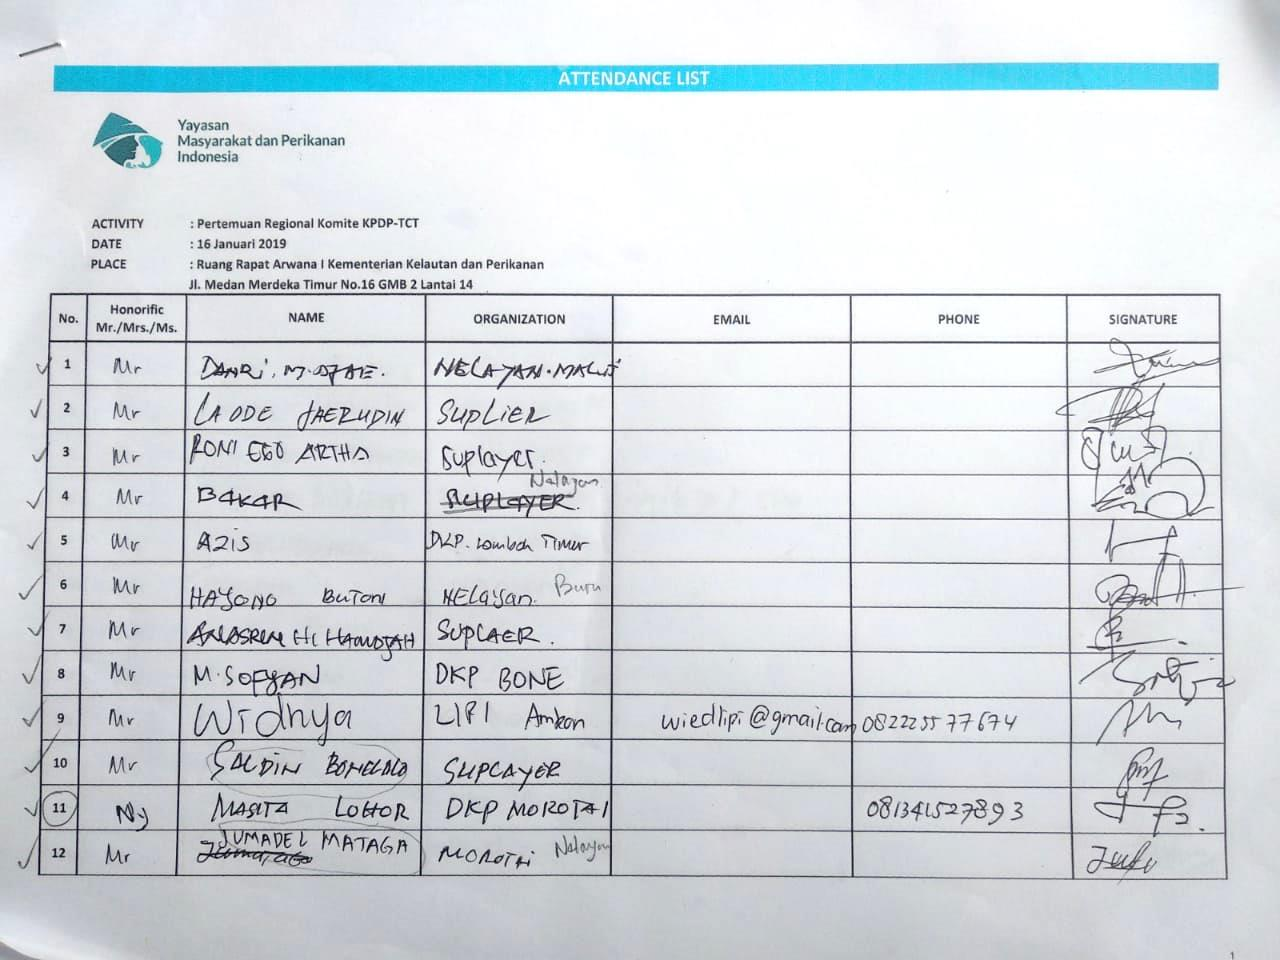 ATTENDANCE LIST
Yayasan
Masyarakat dan Perikanan
Indonesia
ACTIVITY : Pertemuan Regional Komite KPDP-TCT
DATE : 16 Januari 2019
PLACE : Ruang Rapat Arwana I Kementerian Kelautan dan Perikanan
Jl. Medan Merdeka Timur No.16 GMB 2 Lantai 14
No. Honorific Mr./Mrs./Ms. NAME ORGANIZATION EMAIL PHONE SIGNATURE
1 Mr DAHRI. M. NELAYAN.
2 Mr LA ODE JAERUDIN SUPLIER
3 Mr RONI EGO ARTHA Suplayer.
4 Mr BAKAR SUPLAYER. Nelayan
5 Mr AZIS DKP. Lombok Timur
6 Mr HAYONO BUTON NELAYAN. Buru
7 Mr HI HAMDJAH SUPLAER.
8 Mr M. SOFYAN DKP BONE
9 Mr Widhya LIPI Ambon wiedlipi@gmail.com 082225577674
10 Mr SUPLAYER
11 Ny MASITA LOHOR DKP MOROTAI 081341527893
12 Mr JUMADEL MATAGA MOROTAI Nelayan
1